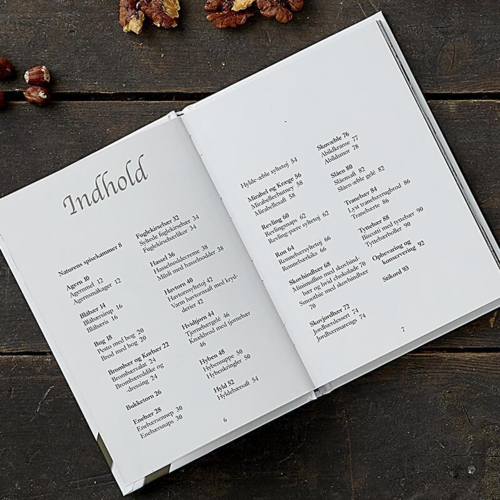 Indhold
Naturens spisekammer 8
Agern 10
Agernmel 12
Agernsmåkager 12
Blåbær 14
Blåbærsirup 16
Blåbæris 16
Bog 18
Pesto med bog 20
Brød med bog 20
Brombær og Korbær 22
Brombærsalat 24
Brombæreddike og
-dressing 24
Bukketorn 26
Enebær 28
Enebærsennep 30
Enebærsnaps 30
Fuglekirsebær 32
Syltede fuglekirsebær 34
Fuglekirsebærlikør 34
Hassel 36
Hasselnøddecreme 38
Müsli med hasselnødder 38
Havtorn 40
Havtornsyltetøj 42
Varm havtornsaft med kryd-
derier 42
Hvidtjørn 44
Tjørnebærgelé 46
Knækbrød med tjørnebær
46
Hyben 48
Hybensuppe 50
Hybenkringler 50
Hyld 52
Hyldebærsaft 54
6
Hylde-æble syltetøj 54
Mirabel og Kræge 56
Mirabelchutney 58
Mirabelsaft 58
Revling 60
Revlingsnaps 62
Revling-pære syltetøj 62
Røn 64
Rønnebærsyltetøj 66
Rønnebærkiks 66
Skovhindbær 68
Minimuffins med skovhind-
bær og hvid chokolade 70
Smoothie med skovhindbær
70
Skovjordbær 72
Jordbærdessert 74
Jordbærmarengs 74
Skovæble 76
Abildkranse 77
Abildumor 78
Slåen 80
Slåensaft 82
Slåen-æble gelé 82
Tranebær 84
Lyst tranebærrugbrød 86
Tranebærte 86
Tyttebær 88
Biscotti med tyttebær 90
Tyttebærboller 90
Opbevaring og
konservering 92
Stikord 93
7